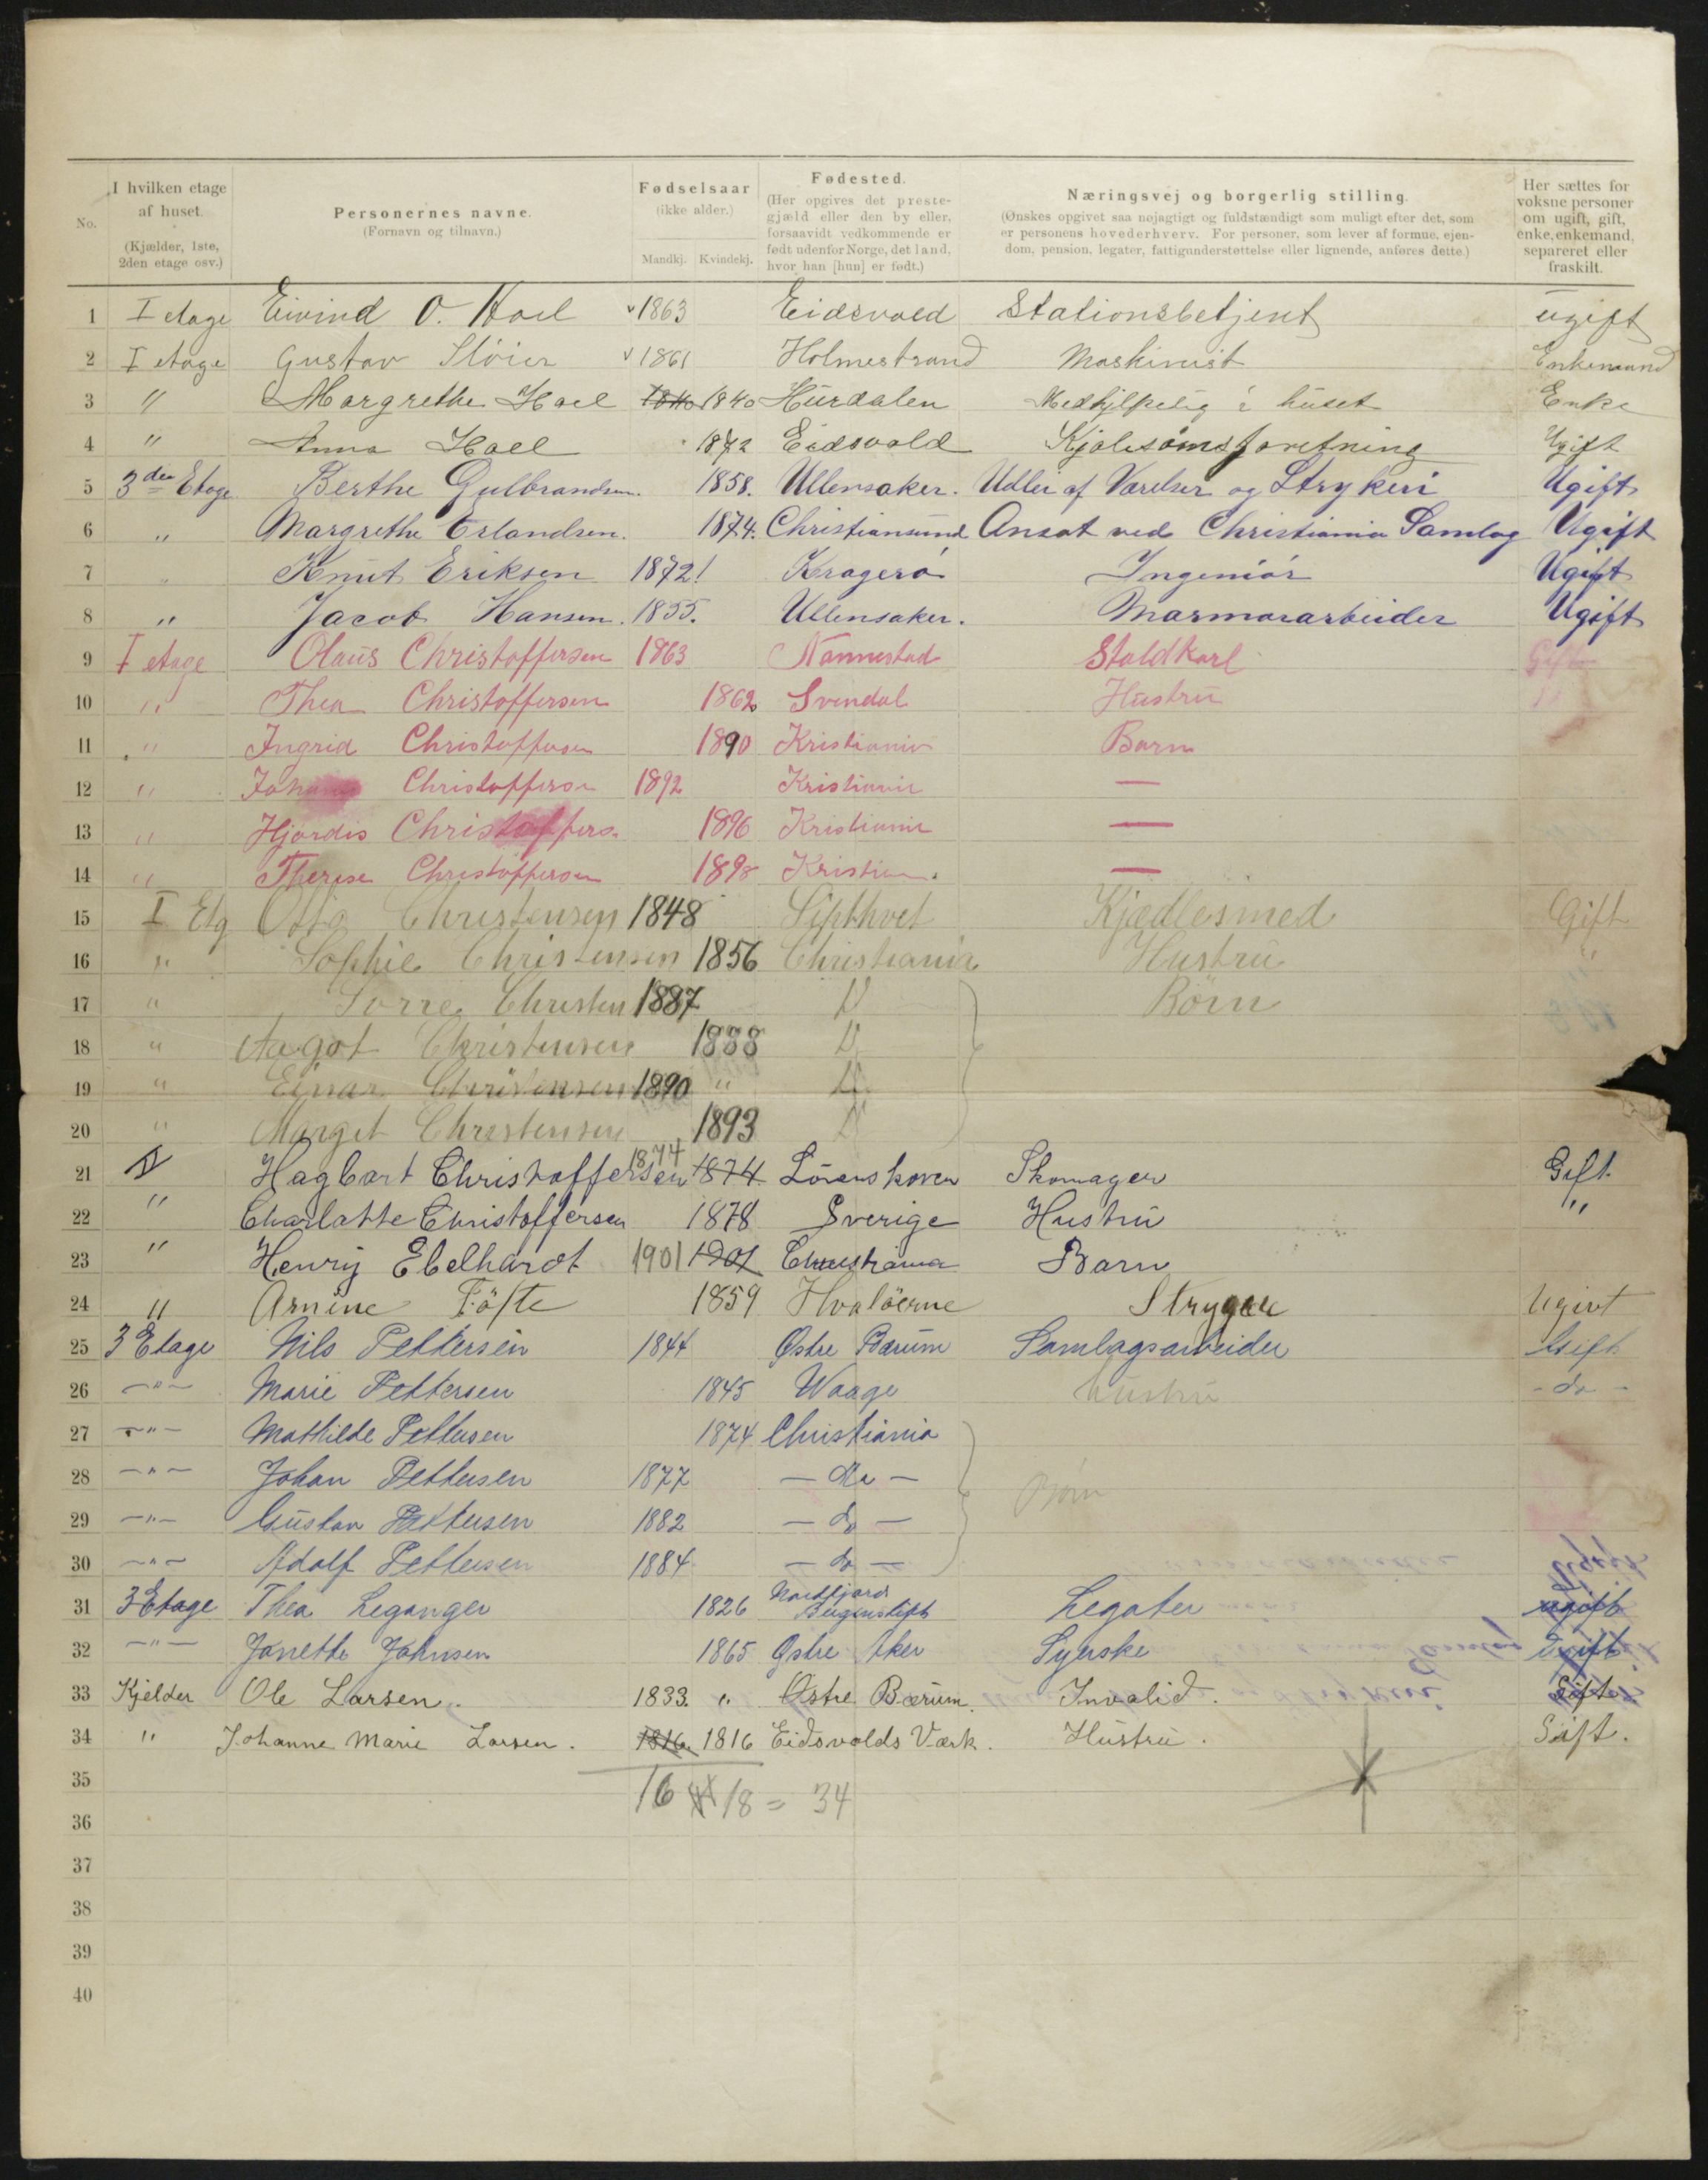 No. I hvilken etage af huset. (Kjælder, 1ste, 2den etage osv.) Personernes navne. (Fornavn og tilnavn.) Fødselsaar (ikke alder.) Mandkj. Kvindekj. Fødested. (Her opgives det prestegjæld eller den by eller, forsaavidt vedkommende er født udenfor Norge, det land, hvor han [hun] er født.) Næringsvej og borgerlig stilling. (Ønskes opgivet saa nøjagtigt og fuldstændigt som muligt efter det, som er personens hovederhverv. For personer, som lever af formue, ejendom, pension, legater, fattigunderstøttelse eller lignende, anføres dette.) Her sættes for voksne personer om ugift, gift, enke, enkemand, separeret eller fraskilt.
1 I etage Eivind O. Hael 1863 Eidsvold Stationsbetjent ugift
2 I etage Gustav Støier 1861 Holmestrand Maskinist Enkemand
3 " Margrethe Hael 1840 1840 Hurdalen Medhjelpelig i huset Enke
4 " Anna Hael 1872 Eidsvold Kjolesømsforretning Ugift
5 3die Etage Berthe Gulbrandsen. 1858. Ullensaker. Udlei af Værelser og Strykeri Ugift
6 " Margrethe Erlandsen. 1874. Christiansund Ansat ved Christiania Samlag Ugift
7 " Knut Eriksen 1872! Kragerø Ingeniør Ugift
8 " Jacob Hansen. 1855. Ullensaker. Marmorarbeider Ugift
9 I etage Olaus Christoffersen 1863 Nannestad Staldkarl Gift
10 " Thea Christoffersen 1862 Svendal Hustru "
11 " Ingrid Christoffersen 1890 Kristiania Barn
12 " Christoffersen 1892 Kristiania —
13 " Hjørdis Christoffersen 1896 Kristiania —
14 " Therese Christoffersen 1898 Kristian. —
15 I Etg Otto Christensen 1848 Kjedlesmed Gift
16 " Sophie Christensen 1856 Christiania Hustru "
17 " Christen 1887 D Børn
18 " Aagot Christensen 1888 D
19 " Einar Christensen 1890 " D
20 " Marget Christensen 1893 D
21 Hagbart Christoffersen 1874 1874 Lørenskoven Skomager Gift.
22 " Charlatte Christoffersen 1878 Sverige Hustru "
23 " Henrij Ebelhardt 1901 1901 Christiania Barn
24 " Arnine Føste 1859 Hvaløerne Strygere Ugivt
25 3 Etage Nils Pettersen 1844 Østre Bærum Samlagsarbeider Gift
26 — " — Marie Pettersen 1845 Waage Hustru - do -
27 — " — Mathilde Pettersen 1874 Christiania
28 — " — Johan Pettersen 1877 — do — Børn
29 — " — Gustav Pettersen 1882 — do —
30 — " — Adolf Pettersen 1884 — do —
31 3 Etage Thea Leganger 1826 Nordfjord Bergenstift Legater ugift
32 — " — Janette Johnsen 1865 Østre Aker Syerske Ugift
33 Kjelder Ole Larsen. 1833. " Østre Bærum. Invalid. Gift
34 " Johanne Marie Larsen. 1816. 1816 Eidsvolds Værk. Hustru. Gift.
35 16 18 = 34
36
37
38
39
40